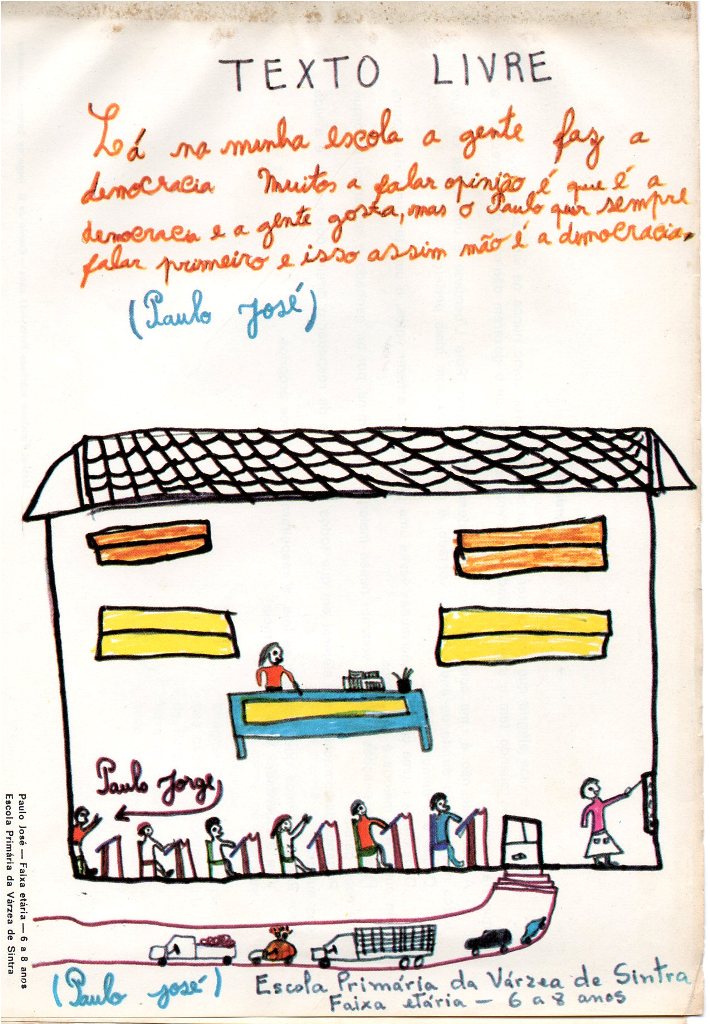 TEXTO LIVRE
Lá na minha escola a gente faz a
democracia Muitos a falar opinião é que é a
democracia e a gente gosta, mas o Paulo quer sempre
falar primeiro e isso assim não é a democracia.
(Paulo José)
Paulo Jorge
Paulo José — Faixa etária — 6 a 8 anos
Escola Primária da Várzea de Sintra
(Paulo José) Escola Primária da Várzea de Sintra
Faixa etária — 6 a 8 anos